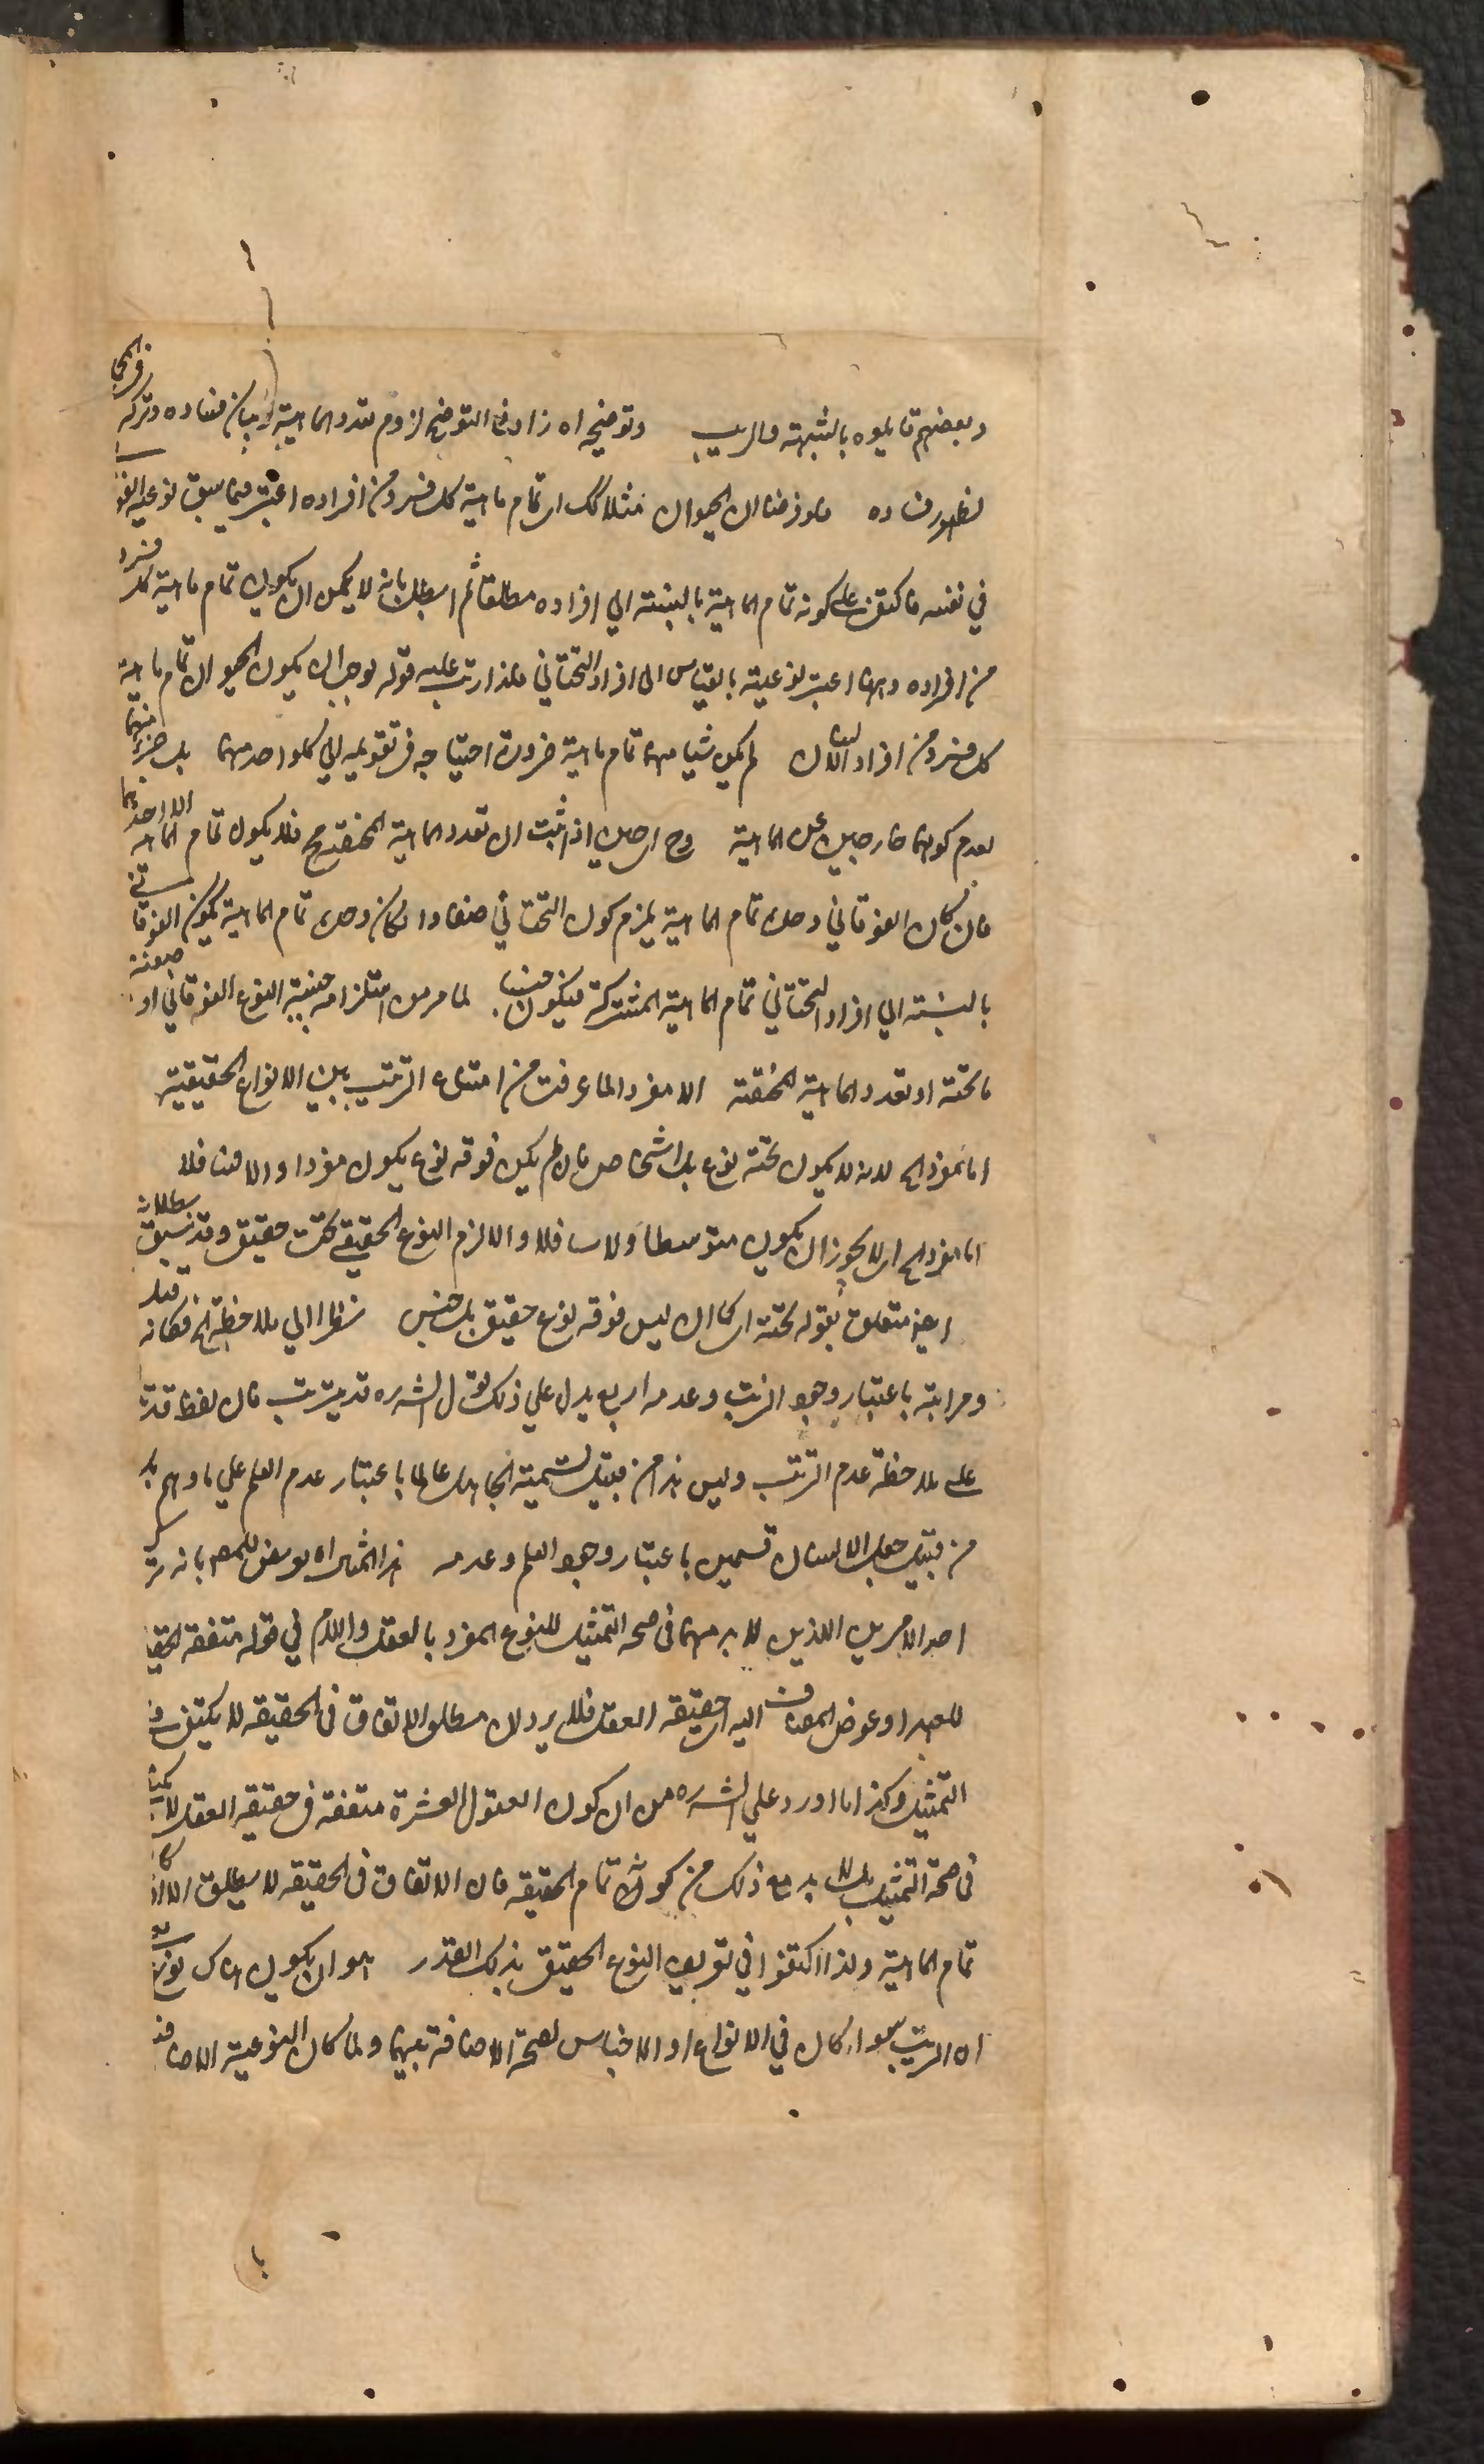 وبعضهم قابلوه بالشبهة والريب وتوضيحه اه زاد في التوضيح لزوم تعدد الماهية وبيان فساده وتركه في
لظهور فساده فلو فرضنا ان الحيوان مثلا كك اى تمام ماهية كل فرد من افراده اعتبر فيما سبق نوعية
في نفسه فاكتفى على كونه تمام الماهية بالنسبة الي افراده مطلقا ثم ابطل بانه لا يمكن ان يكون تمام ماهية كل فرد
من افراده وههنا اعتبر نوعيته بالقياس الى افراد التحتاني فلذا رتب عليه قوله لوجب ان يكون الحيوان تمام ماهية
كل فرد من افراد الانسان لم يكن شيئا منهما تمام ماهية ضرورة احتياجه في تقويمه الي كلواحد منهما بل جزء منهما
لعدم كونهما خارجين عن الماهية وح اى حين اذ ثبت ان تعدد الماهية المختصة مح فلا يكون تمام الماهية الا احدهما
فان كان الفوقاني وحده تمام الماهية يلزم كون التحتاني صنفا وان كان وحده تمام الماهية يكون الفوقاني
بالنسبة الي افراد التحتاني تمام الماهية المشتركة فيكون جنسا لما مر من استلزامه جنسية النوع الفوقاني او صنفية
ما تحته او تعدد الماهية المختصة الا مفردا لما عرفت من امتناع الترتيب بين الانواع الحقيقية
اما مفردا لانه لا يكون تحته نوع بل اشخاص فان لم يكن فوقه نوع يكون مفردا والا فسافلا
اما مفردا اى لا يجوز ان يكون متوسطا ولا سافلا والا لزم النوع الحقيقي تحت حقيقي وقد سبق بطلانه
متعلق بقوله تحته اى كما ان ليس فوقه نوع حقيقي بل جنس نظرا الي ملاحظة الخ فكانه قيل
ومراتبه باعتبار وجود الترتب وعدمه اربع يدل علي ذلك قول الشه ره قد يترتب فان لفظ قد
على ملاحظة عدم الترتب وليس هذا من قبيل تسمية الجاهل عالما باعتبار عدم العلم علي ما وهم بل
من قبيل جعل الانسان قسمين باعتبار وجود العلم وعدمه هذا المثال اه يومى للمص بانه ترك
احد الامرين اللذين لا بد منهما في صحة التمثيل للنوع المفرد بالعقل واللام في قوله متفقة الحقيقة
للعهد او عوض المضاف اليه اى حقيقة العقل فلا يرد ان مطلق الاتفاق في الحقيقة لا يكفي في
التمثيل وكذا ما اورد علي الشه ره من ان كون العقول العشرة متفقة في حقيقة العقل لا يكفي
في صحة التمثيل بل لا بد مع ذلك من كونه تمام الحقيقة فان الاتفاق في الحقيقة لا يطلق الا اذا كان
تمام الماهية ولذا اكتفوا في تعريف النوع الحقيقي بذلك القدر هو ان يكون هناك نوع
اه الترتيب سواء كان في الانواع او الاجناس لصحة الاضافة بينهما ولما كان النوعية الاضافية